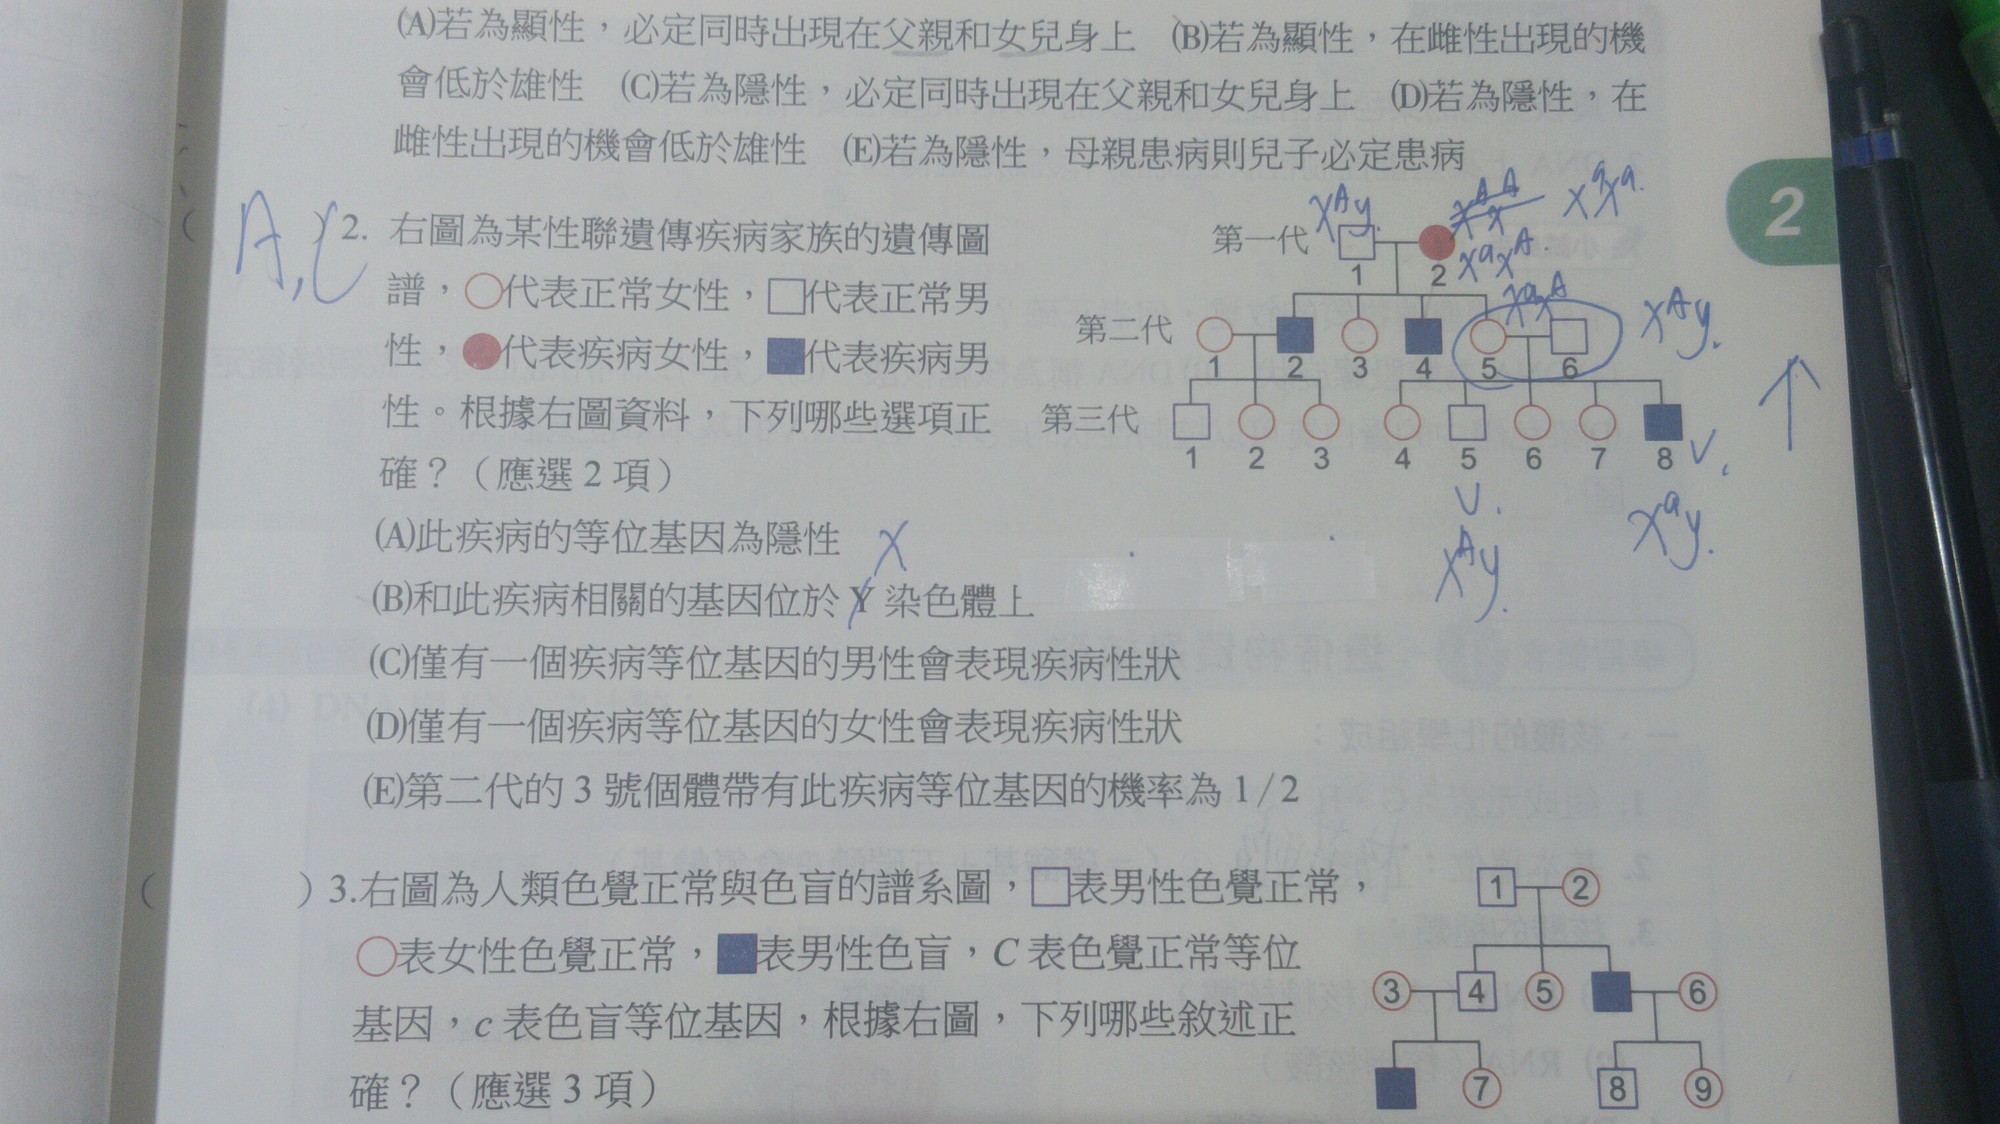 (A)若為顯性，必定同時出現在父親和女兒身上 (B)若為顯性，在雌性出現的機
會低於雄性 (C)若為隱性，必定同時出現在父親和女兒身上 (D)若為隱性，在
雌性出現的機會低於雄性 (E)若為隱性，母親患病則兒子必定患病
A,C
)2. 右圖為某性聯遺傳疾病家族的遺傳圖
譜，○代表正常女性，□代表正常男
性，●代表疾病女性，■代表疾病男
性。根據右圖資料，下列哪些選項正
確？（應選2項）
X^A y. X^A X^A X^a X^a.
第一代 1 2 X^a X^A.
X^a X^A X^A y.
第二代 1 2 3 4 5 6
第三代 1 2 3 4 5 6 7 8 V.
V.
X^A y. X^a y.
(A)此疾病的等位基因為隱性
X
(B)和此疾病相關的基因位於Y染色體上
(C)僅有一個疾病等位基因的男性會表現疾病性狀
(D)僅有一個疾病等位基因的女性會表現疾病性狀
(E)第二代的3號個體帶有此疾病等位基因的機率為1/2
2
( )3.右圖為人類色覺正常與色盲的譜系圖，□表男性色覺正常，
○表女性色覺正常，■表男性色盲，C表色覺正常等位
基因，c表色盲等位基因，根據右圖，下列哪些敘述正
確？（應選3項）
1 2
3 4 5 6
7 8 9